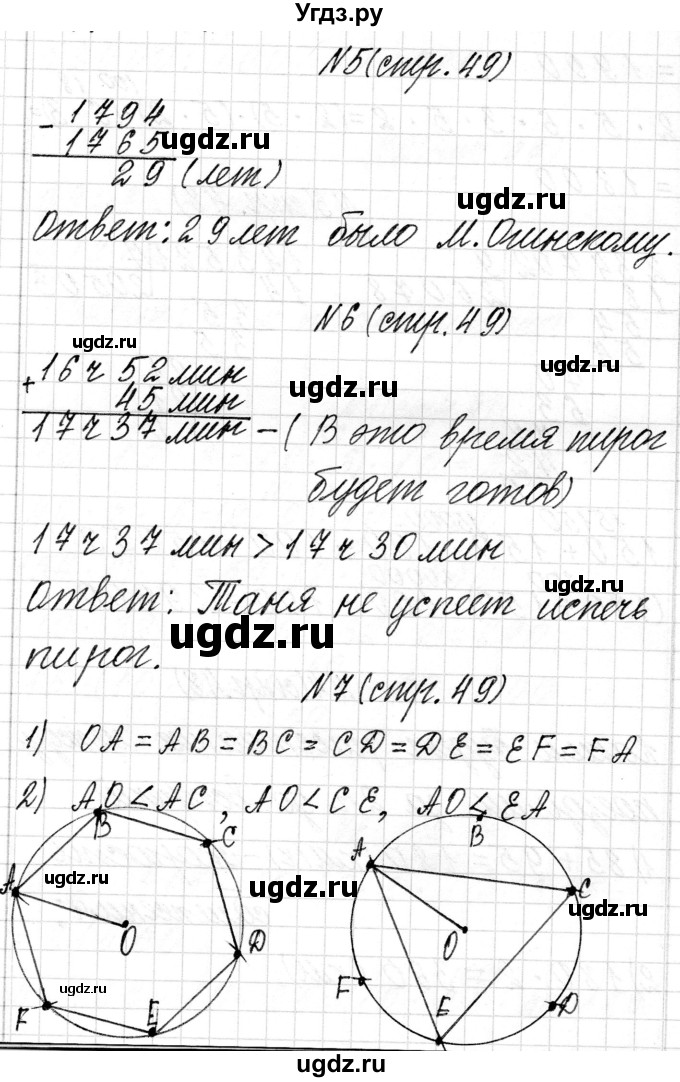 Угдз.ру
N5 (стр. 49)
- 1794
1765
29 (лет)
ugdz.ru
ugdz.ru
Ответ: 29 лет было М. Огинскому.
ugdz.ru
N6 (стр. 49)
ugdz.ru
+ 16ч 52 мин
45 мин
ugdz.ru
17ч 37 мин – (В это время пирог
будет готов)
17ч 37 мин > 17ч 30 мин
ugdz.ru
Ответ: Таня не успеет испечь
ugdz.ru
пирог.
N7 (стр. 49)
1) OA = AB = BC = CD = DE = EF = FA
2) AO < AC, AO < CE, AO < EA
B C A O D F E
B A C O F D E
ugdz.ru
ugdz.ru
ugdz.ru
ugdz.ru
ugdz.ru